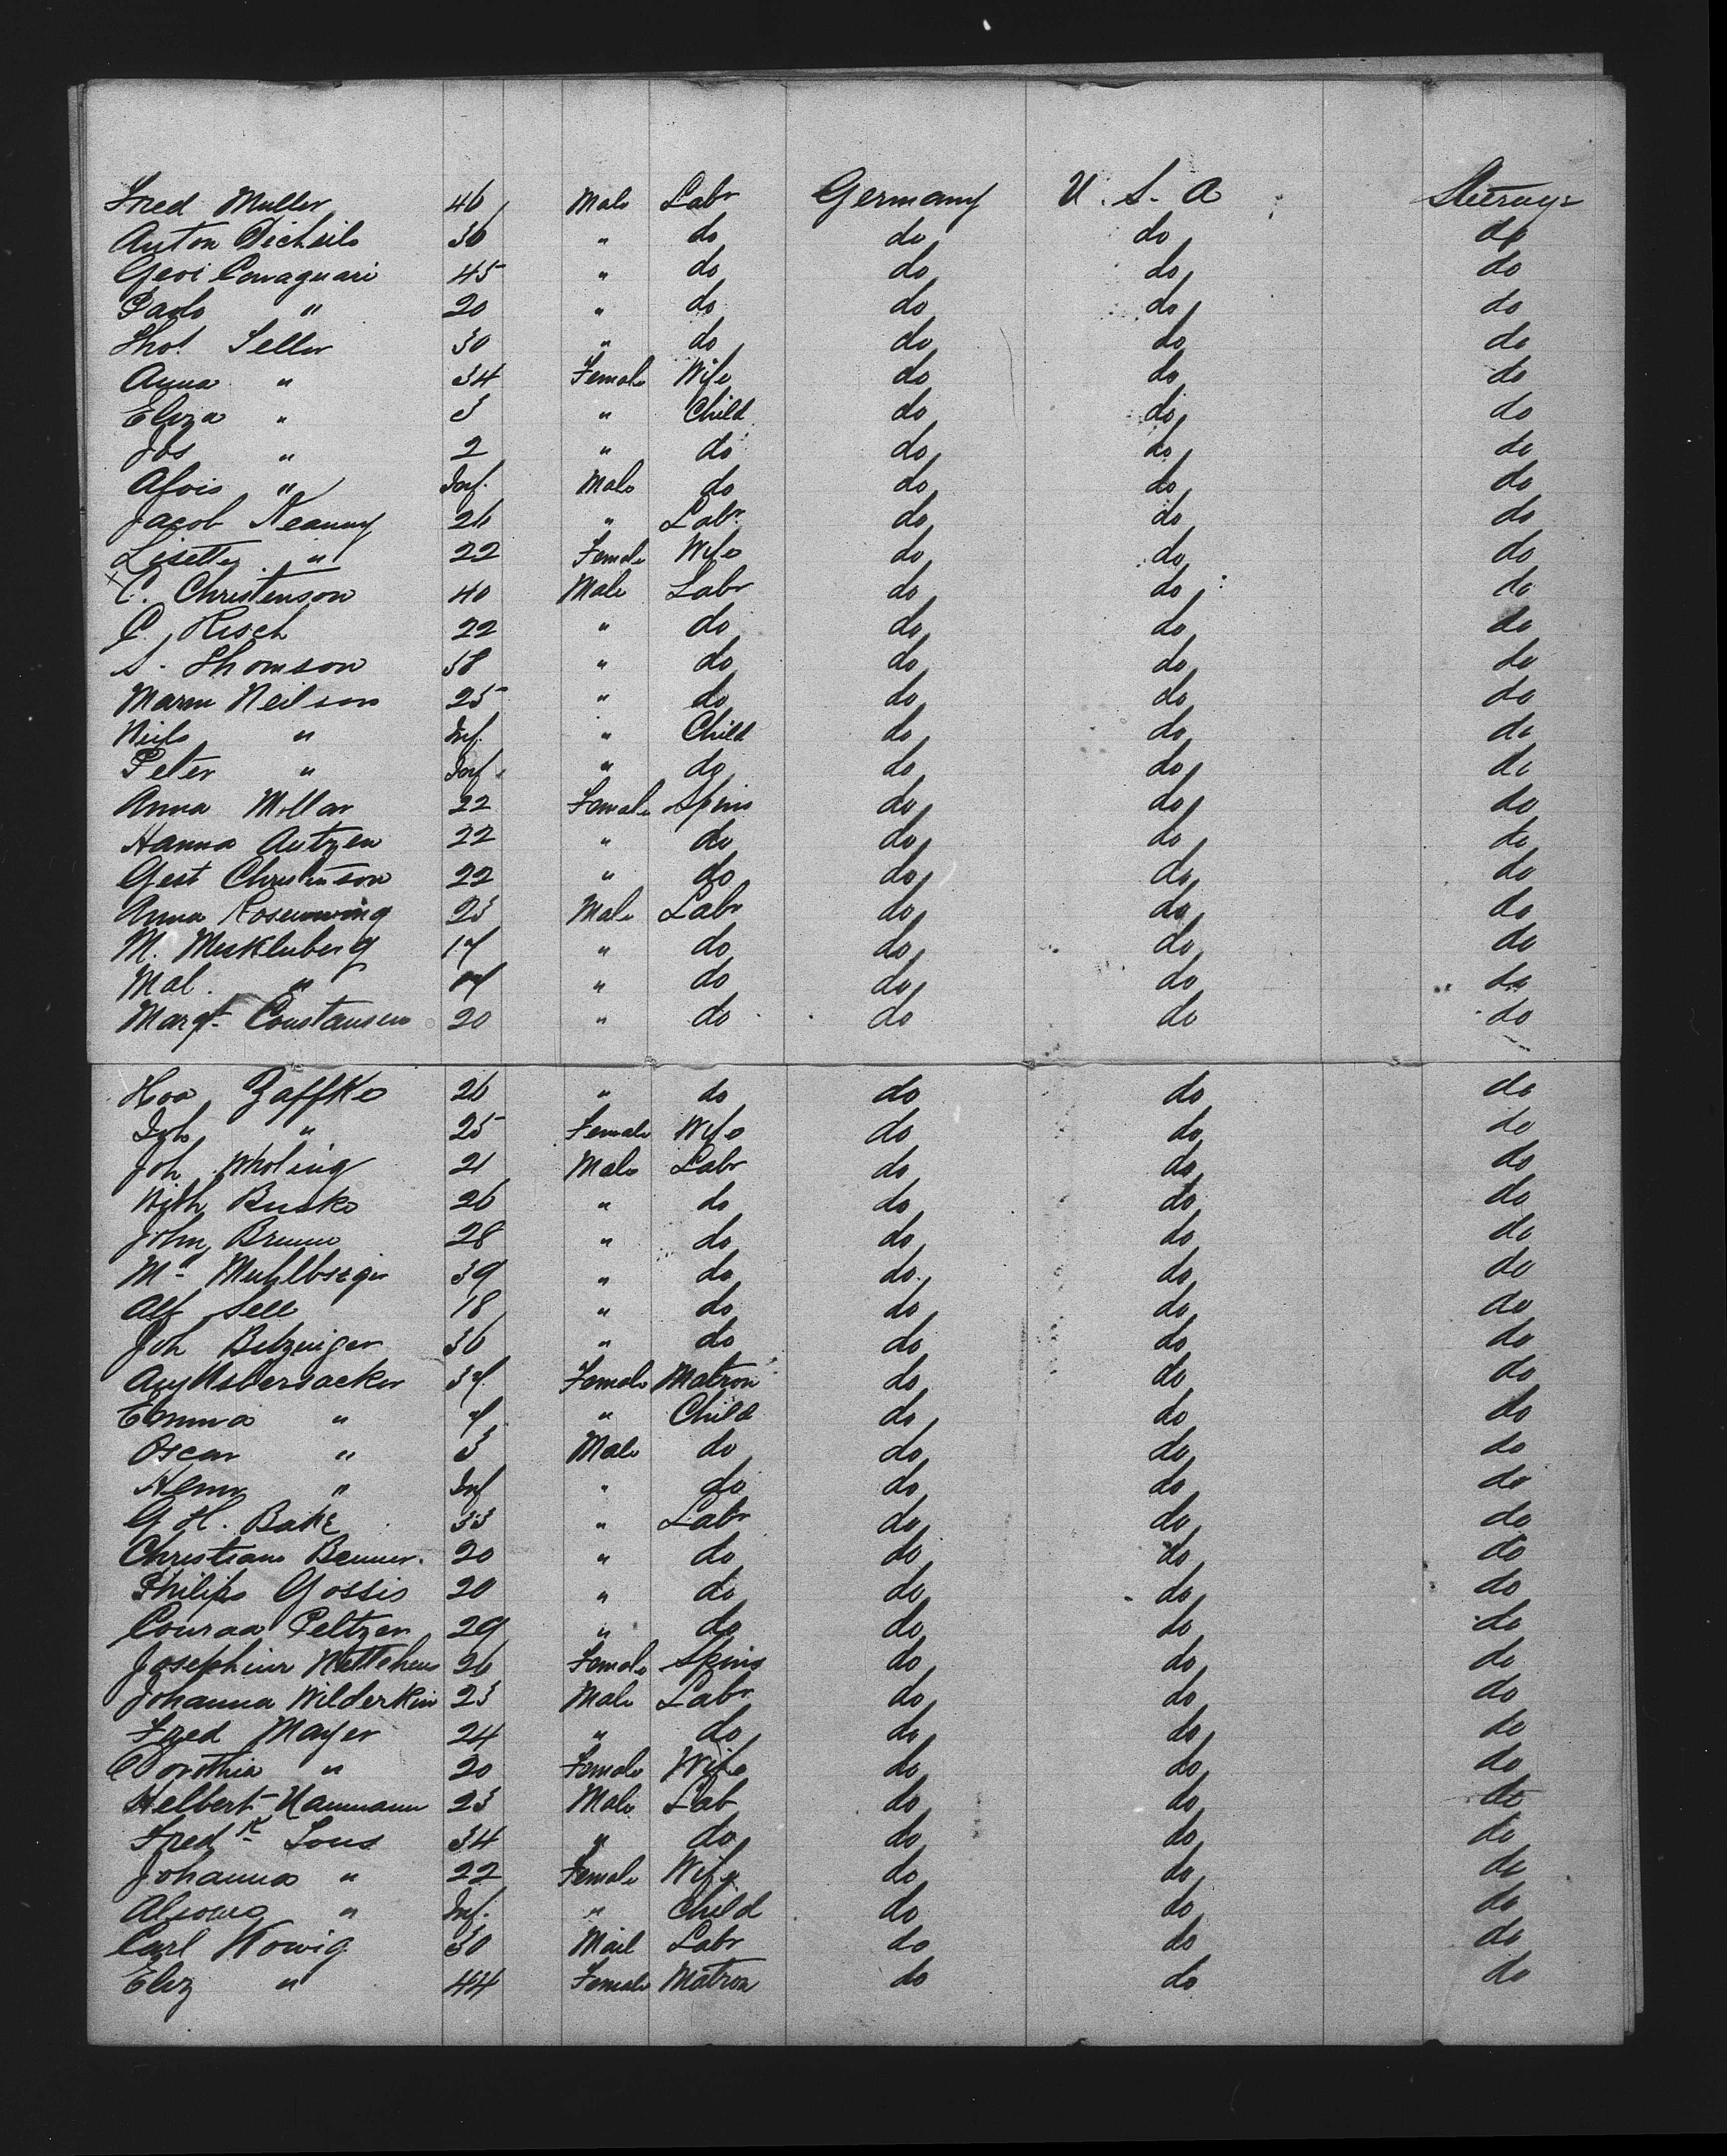 Fred Muller 46 Male Labr Germany U. S. A Steerage
Anton 36 " do do do do
Geoi 45 " do do do do
Paolo " 20 " do do do do
Thos Seller 30 " do do do do
Anna " 34 Female Wife do do do
Eliza " 3 " Child do do do
Jos " 2 " do do do do
Alois " Inf. Male do do do do
Jacob 26 " Labr do do do
Lisette " 22 Female Wife do do do
x C. Christenson 40 Male Labr do do do
C. Risch 22 " do do do do
S. Thomson 38 " do do do do
Marm Neilson 25 " do do do do
Neils " Inf. " Child do do do
Peter " Inf. " do do do do
Anna Mollar 22 Female Spins do do do
Hanna Autzen 22 " do do do do
Gest Christinson 22 " do do do do
Anna Rosenwing 23 Male Labr do do do
M. Meckluberg 17 " do do do do
Mal. " " do do do do
Margt Constansen 20 " do do do do
Zaffke 26 " do do do do
" 25 Female Wife do do do
Joh Wholing 21 Male Labr do do do
With Buske 26 " do do do do
John Brunn 28 " do do do do
Mn Muhlberger 39 " do do do do
Alf Sell 18 " do do do do
Joh Betzinger 36 " do do do do
Aug Uebersacker 37 Female Matron do do do
Emma " 7 " Child do do do
Oscar " 3 Male do do do do
Henr " Inf " do do do do
G H. Bake 33 " Labr do do do
Christian Benner. 20 " do do do do
Philipo Gossis 20 " do do do do
Conraa Peltzer 29 " do do do do
Josephine 26 Female Spins do do do
Johanna Wilderkin 23 Male Labr do do do
Fred Mayer 24 " do do do do
Dorothia " 20 Female Wife do do do
Helbert Naumann 23 Male Lab do do do
Fredk Sous 34 " do do do do
Johanna " 22 Female Wife do do do
" Inf. " Child do do do
Carl Wowig 30 Mail Labr do do do
Eliz " 44 Female Matron do do do